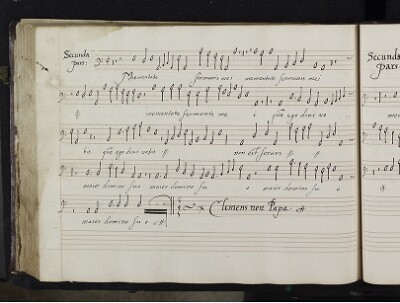 Secunda
pars:
Mementote sermonis mei mementote sermonis mei
ij mementote sermonis me i que ego dixi vo
bis que ego dixi vobis ij non est servus ij ij
maior domino suo maior domino su o maior domino su o ij
maior domino su o
Clemens non Papa
Secunda
pars